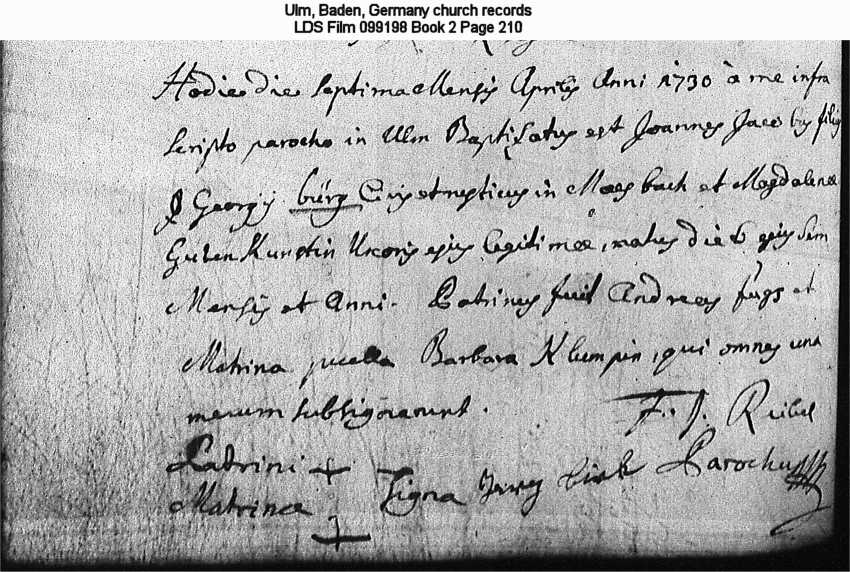 Ulm, Baden, Germany church records
LDS Film 099198 Book 2 Page 210
Hodie die septima Mensis Aprilis Anni 1730 à me infra
scripto parocho in Ulm Baptisatus est Joannes Jacobus filius
Georgij bürg Civis et in Maesbach et Magdalenae
Gutenkunstin Uxoris ejus legitimae, natus die 6 ejusdem
Mensis et Anni. Patrinus fuit Andreas fugs et
Matrina puella Barbara Klumpin, qui omnes una
mecum subsignarunt.
F. J. Reibel
Patrini + Signa Jerg Parochus
Matrinae +